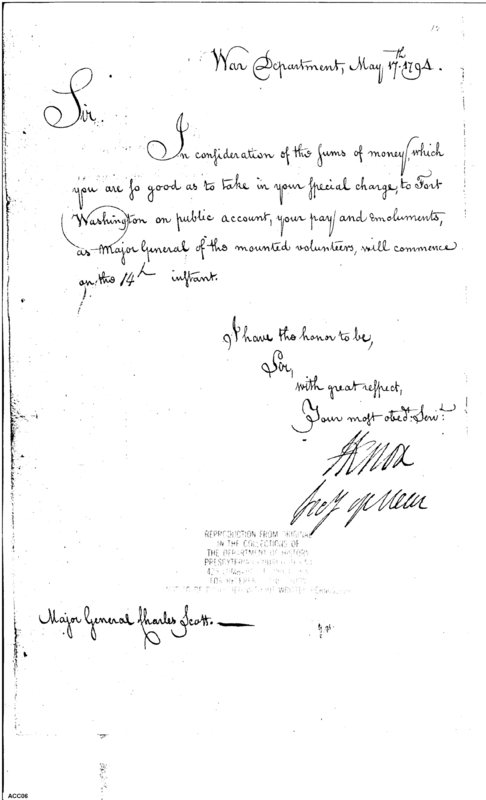 War Department, May 17th. 1794.
Sir.
In consideration of the sums of money, which
you are so good as to take in your special charge, to Fort
Washington on public account, your pay and emoluments,
as Major General of the mounted volunteers, will commence
on the 14th instant.
I have the honor to be,
Sir,
with great respect,
Your most obedt. Servt.
H Knox
Secy of War
REPRODUCTION FROM ORIGINAL
IN THE COLLECTIONS OF
THE DEPARTMENT OF HISTORY
PRESBYTERIAN
Major General Charles Scott.
ACC06